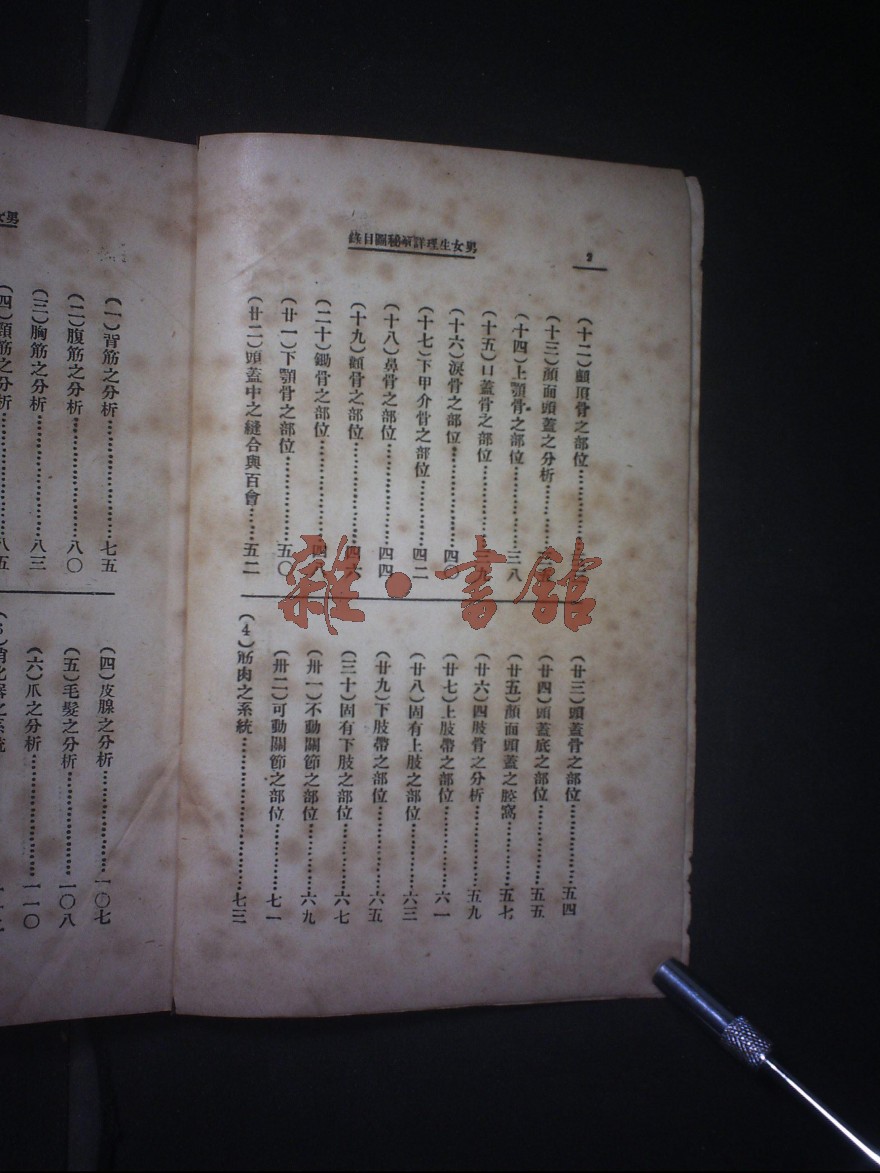 男女生理詳解秘圖目錄
2
(十二)顱頂骨之部位
(十三)顏面頭蓋之分析
(十四)上顎骨之部位……三八
(十五)口蓋骨之部位……三九
(十六)淚骨之部位……四〇
(十七)下甲介骨之部位……四二
(十八)鼻骨之部位……四四
(十九)顴骨之部位……四六
(二十)鋤骨之部位……四八
(廿一)下顎骨之部位……五〇
(廿二)頭蓋中之縫合與百會……五二
(廿三)頭蓋骨之部位……五四
(廿四)頭蓋底之部位……五五
(廿五)顏面頭蓋之腔窩……五七
(廿六)四肢骨之分析……五九
(廿七)上肢帶之部位……六一
(廿八)固有上肢之部位……六三
(廿九)下肢帶之部位……六五
(三十)固有下肢之部位……六七
(卅一)不動關節之部位……六九
(卅二)可動關節之部位……七一
(4)筋肉之系統……七三
(一)背筋之分析……七五
(二)腹筋之分析……八〇
(三)胸筋之分析……八三
(四)頸筋之分析……八五
(四)皮腺之分析……一〇七
(五)毛髮之分析……一〇八
(六)爪之分析……一一〇
雜·書館